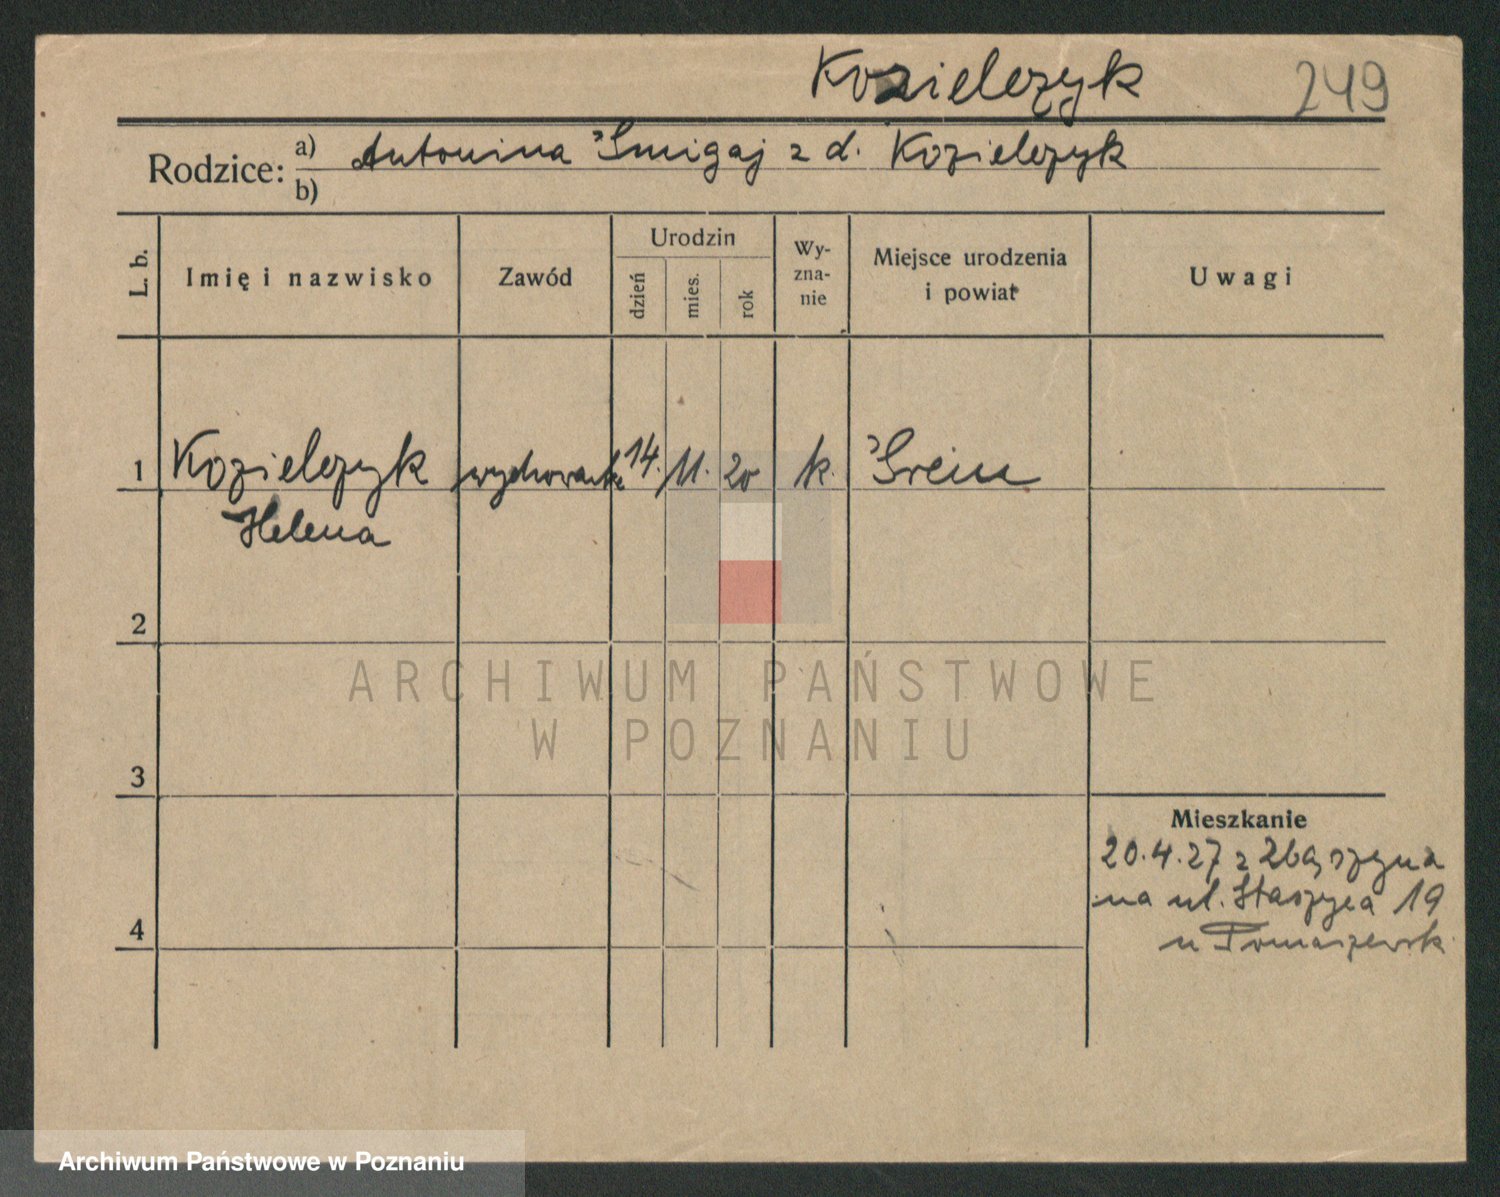 Kozielczyk 249
Rodzice: a) Antonina Śmigaj z d. Kozielczyk
b)
L. b. Imię i nazwisko Zawód Urodzin dzień mies. rok Wy-zna-nie Miejsce urodzenia i powiat Uwagi
1 Kozielczyk wychowanka 14. 11. 20 k. Śrem
Helena
2
ARCHIWUM PAŃSTWOWE
W POZNANIU
3
Mieszkanie
20.4.27 z Zbąszynia
na ul. Staszyca 19
4
u Tomaszewsk.
Archiwum Państwowe w Poznaniu